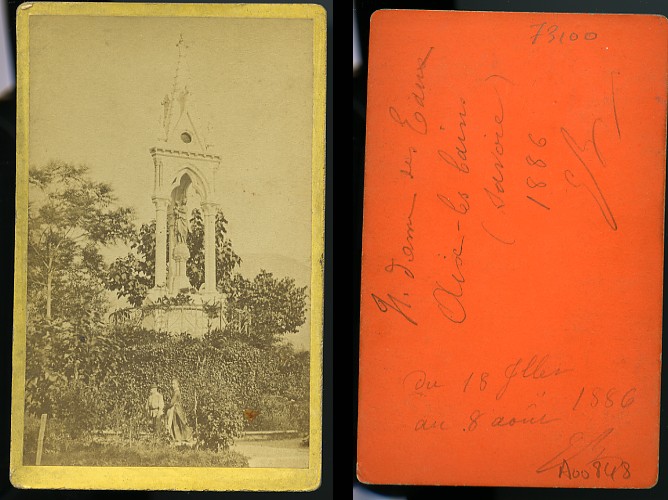 73100
N. Dame des Eaux
Aix-les bains
(Savoie)
1886
du 18 Jllet
au 8 août 1886
A00848